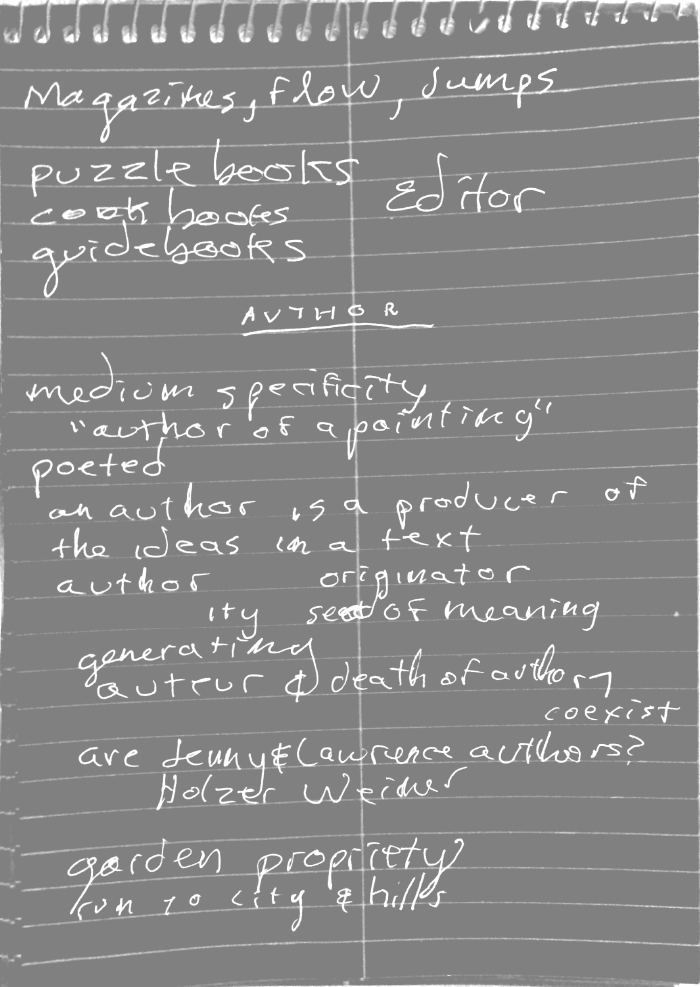 Magazines, flow, Jumps
puzzle books
cook books
guidebooks
Editor
AUTHOR
medium specificity
"author of a painting"
poeted
an author is a producer of
the ideas in a text
author originator
ity of meaning
generating
auteur & death of author
coexist
are Jenny & Lawrence authors?
Holzer Weiner
garden propriety
run to city & hills